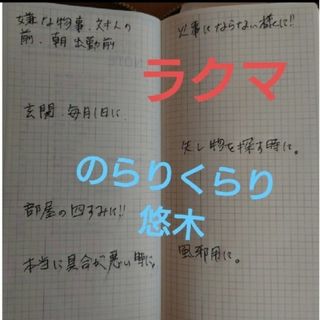 嫌な物事、対人の
前、朝出勤前
玄関 毎月1日に
部屋の四すみに!!
本当に具合が悪い時に。
火事にならない様に!!
失し物を探す時に。
風邪用に。
ラクマ
のらりくらり
悠木